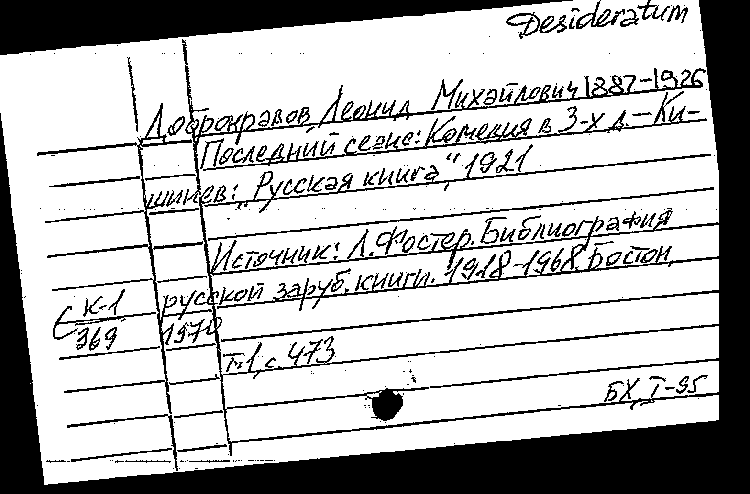 Desideratum
Добронравов Леонид Михайлович 1887-1926
Последний сеанс: Комедия в 3-х д. – Ки-
шинев: „Русская книга“, 1921
Источник: Л. Фостер. Библиография
русской заруб. книги. 1918-1968. Бостон,
1970
т.1, с. 473
К-1
369
БХ, I-95